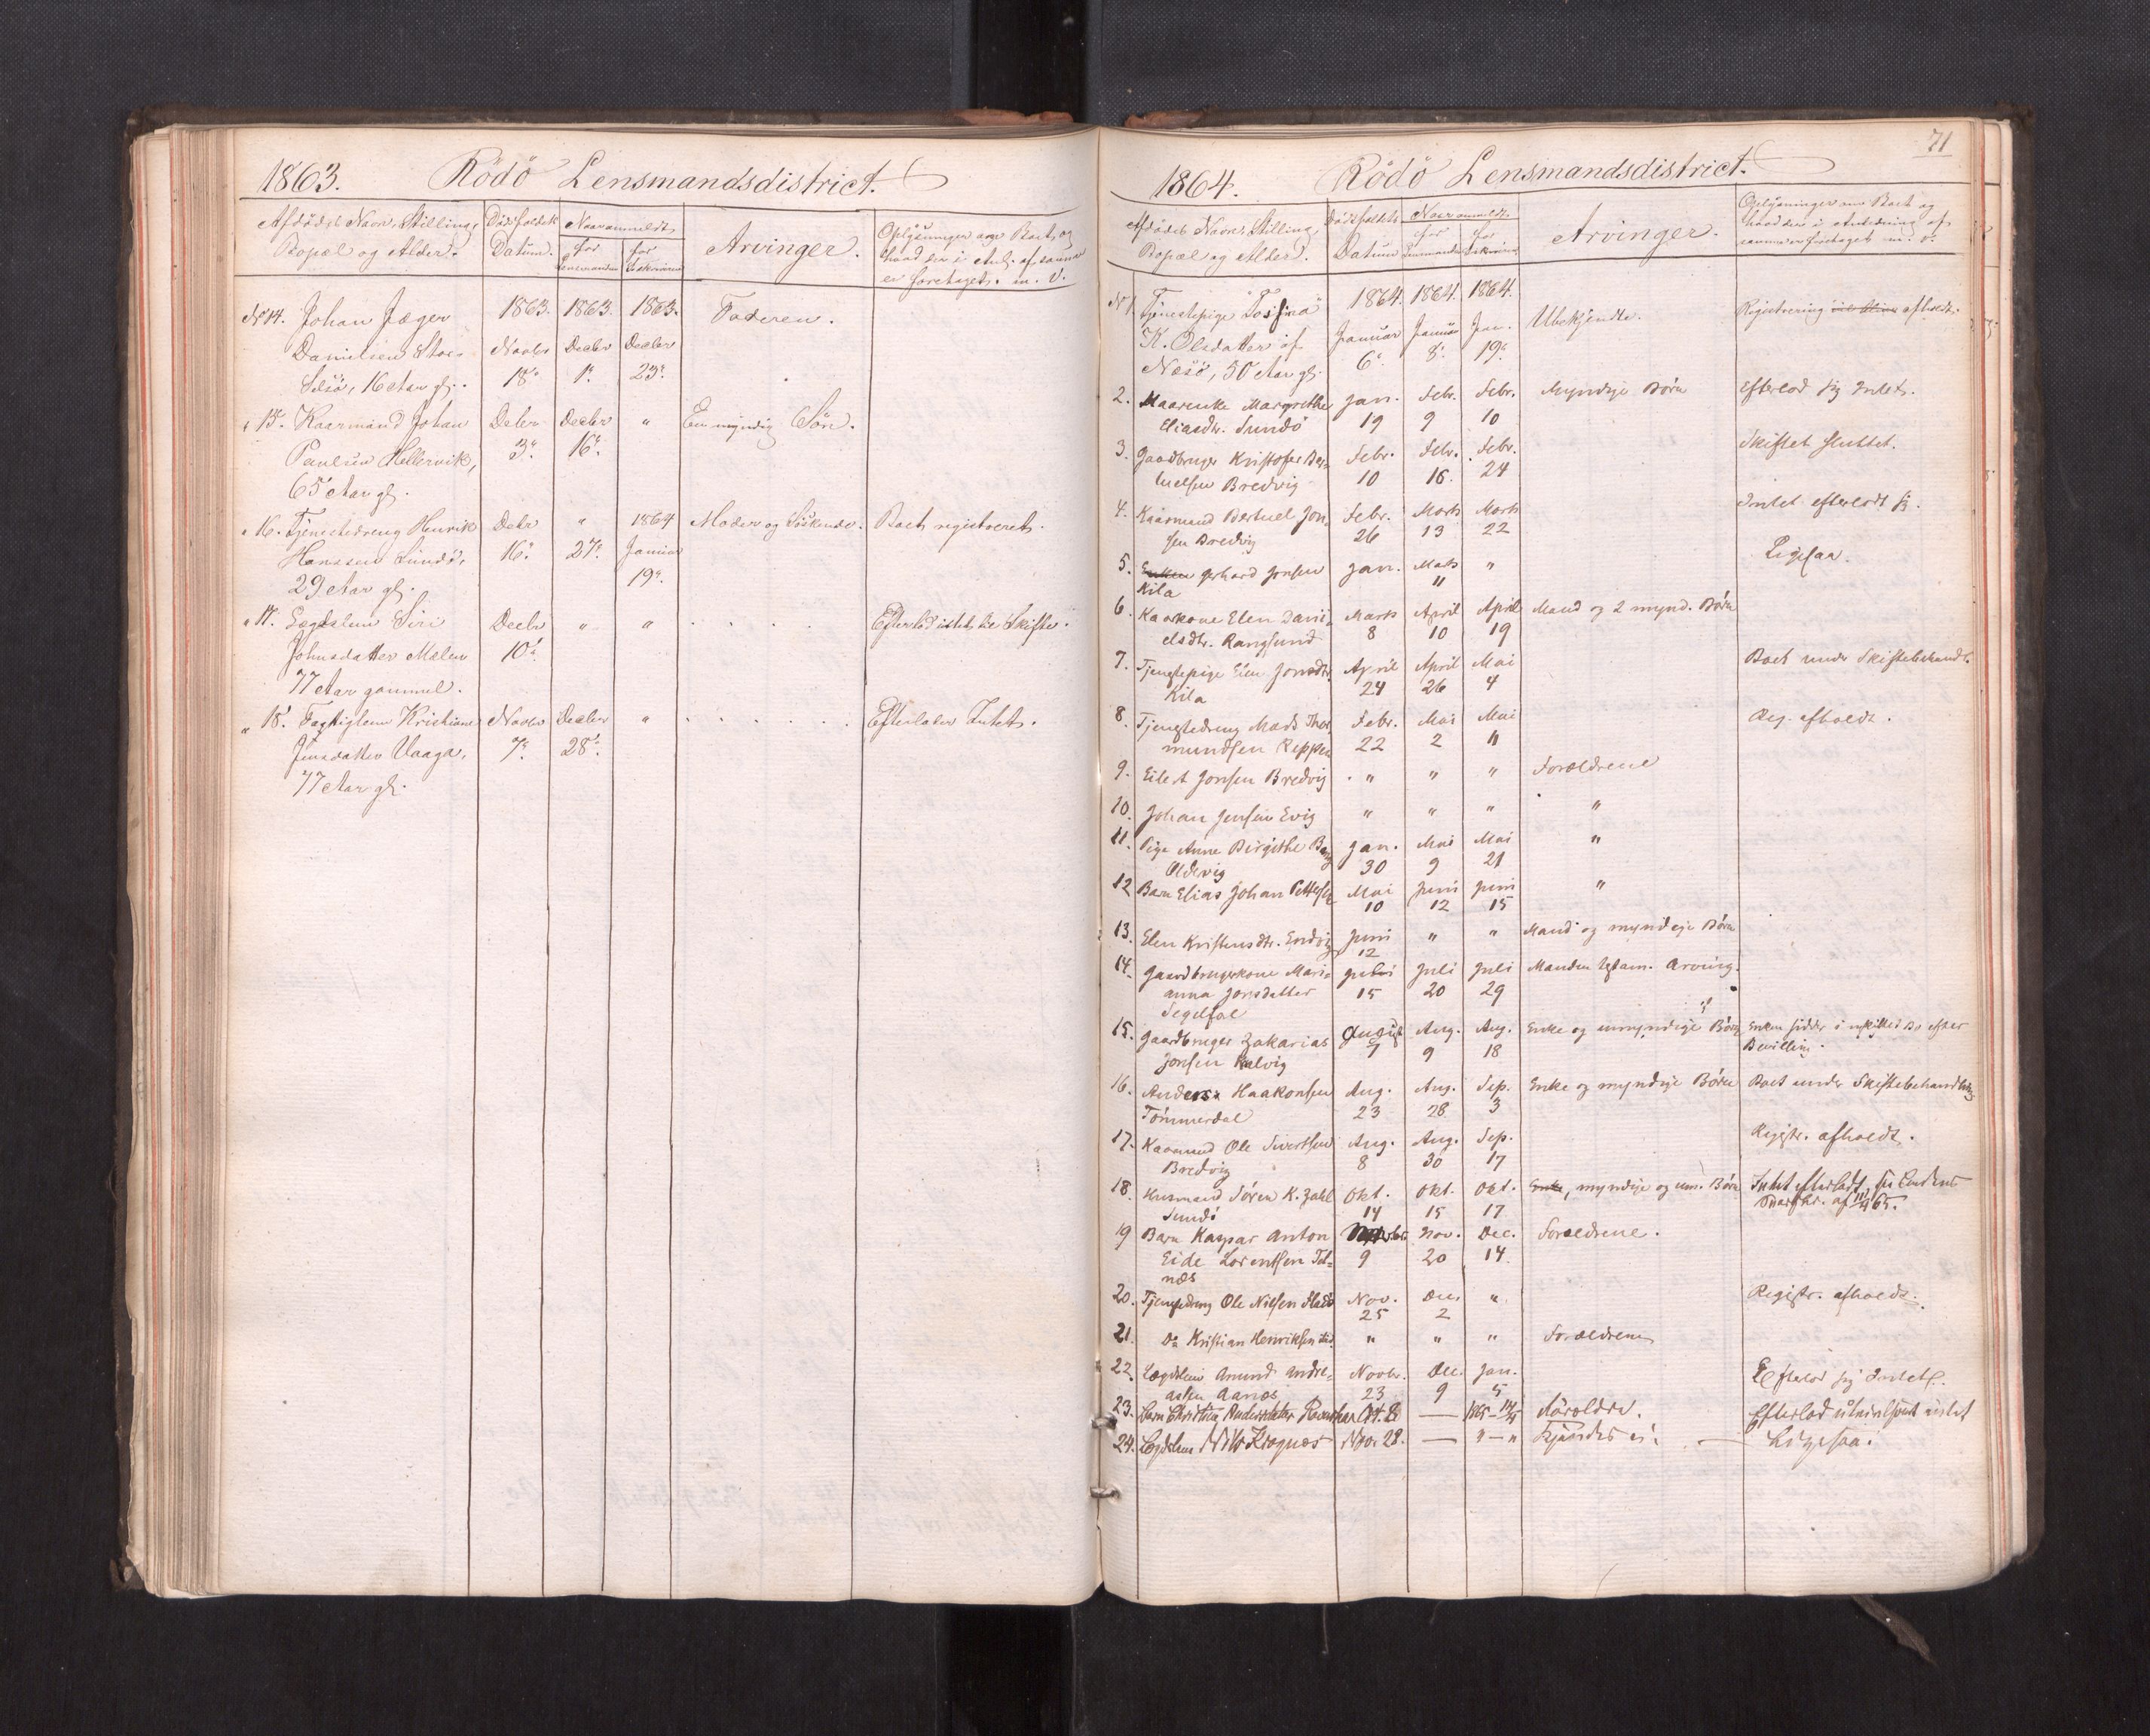 1863. Rödö Lensmandsdistrict.
Afdödes Navn, Stilling, Bopæl og Alder. Dödsfaldets Datum. Naar anmeldt for Lensmanden for Skriveren Arvinger. Oplysninger om Boet, og hvad der i Anl. af samme er foretaget. m. v.
No 14. Johan Jæger 1863. 1863. 1863. Faderen.
Danielsen Novbr Decbr Decbr
Selsö, 16 Aar gl. 18. 1. 23.
" 15. Kaarmand Johan Debr Decbr " En myndig Sön.
Paulsen Hellervik, 3. 16.
65 Aar gl.
" 16. Tjenestedreng Henrik Debr " 1864 Moder og Söskende. Boet registreret.
Hanssen Sundö, 16. 27. Januar
29 Aar gl. 19.
" 17. Lægdslem Siri Decbr " " Efterlod intet, Skifte.
Johnsdatter Mælen 10.
77 Aar gammel.
" 18. Fattiglem Kristiane Novbr Decbr " Efterlader Intet.
Jensdatter Vaaga, 7. 28.
77 Aar gl.
71
1864. Rödö Lensmandsdistrict.
Afdödes Navn, Stilling, Bopæl og Alder. Dödsfaldets Datum Naar anmeldt for Lensmanden for Skriveren Arvinger. Oplysninger om Boet og hvad der i Anledning af samme er foretaget m. v.
No 1. Tjenestepige 1864. 1864. 1864. Ubekjendte. Registrering afholdt.
K. Olsdatter af Januar Januar Jan.
Næsö, 50 Aar gl. 6. 8. 19.
2. Maarenke Margrethe Jan. Febr. Febr. Myndige Börn Efterlod sig Intet.
Eliasdtr. Sundö 19 9 10
3. Gaardbruger Kristofer Ber- Febr. Febr. Febr. Skiftet sluttet.
tuelsen Bredvig 10 16. 24
4. Kaarmand Bertuel Jon- Febr. Marts Marts Intet efterladt sig.
sen Bredvig 26 13 22
5. Enken Gerhard Jensen Jan. Marts " Ligesaa.
Kila "
6. Kaarkone Elen Dani- Marts April April Mand og 2 mynd. Börn
elsdtr. Rangsund 8 10 19
7. Tjenstepige Elen Jonsdtr. April April Mai Boet under Skiftebehandl.
Kila 24 26 4
8. Tjenstedreng Mads Thor- Febr. Mai Mai Reg. afholdt.
mundsen Reppen 22 2 11
9. Eilert Jonsen Bredvig " " " Forældrene
10. Johan Jensen Evig " " " "
11. Pige Anne Birgithe Jan. Mai Mai "
Oldervig 30 9 21
12 Barn Elias Johan Pettersen Mai Juni Juni "
10 12 15
13. Elen Kristensdtr. Juni " " Mand og myndige Börn
12
14. Gaardbrugerkone Mari- Juli Juli Manden testam. Arving.
anna Jonsdatter 15 20 29
Segelfol
15. Gaardbruger Zakarias August Aug. Aug. Enke og umyndige Börn Enken sidder i uskiftet Bo efter
Jonsen Kalvig 7 9 18 Bevilling.
16. Anders Haakonsen Aug. Aug. Sep. Enke og myndige Börn Boet under Skiftebehandling
Tömmerdal 23 28 3
17. Kaarmand Ole Sivertsen Aug. Aug. Sep. Registr. afholdt.
Bredvig 8 30 17
18. Husmand Sören K. Zahl Okt. Okt. Okt. Enke, myndige og um. Börn Intet efterladt,
Sundö 14 15 17 65.
19 Barn Kaspar Anton Nov. Dec. Forældrene.
Eide Lorentsen Tel- 9 20 14.
næs
20. Tjenstedreng Ole Nilsen Nov. Dec. " Registr. afholdt.
25 2
21. Do Kristian Henriksen " " " Forældrene
22. Lægdslem Amund Andre- Novbr. Dec. Jan. Efterlod sig Intet.
assen Aanes 23 9 5
23. Barn Christina Andersdatter Okt. 2 — 1865 Forældre. Efterlod intet
24. Lægdslem Nils Krognæs Nov. 28. — " — " Kjendes ei. — Ligesaa.